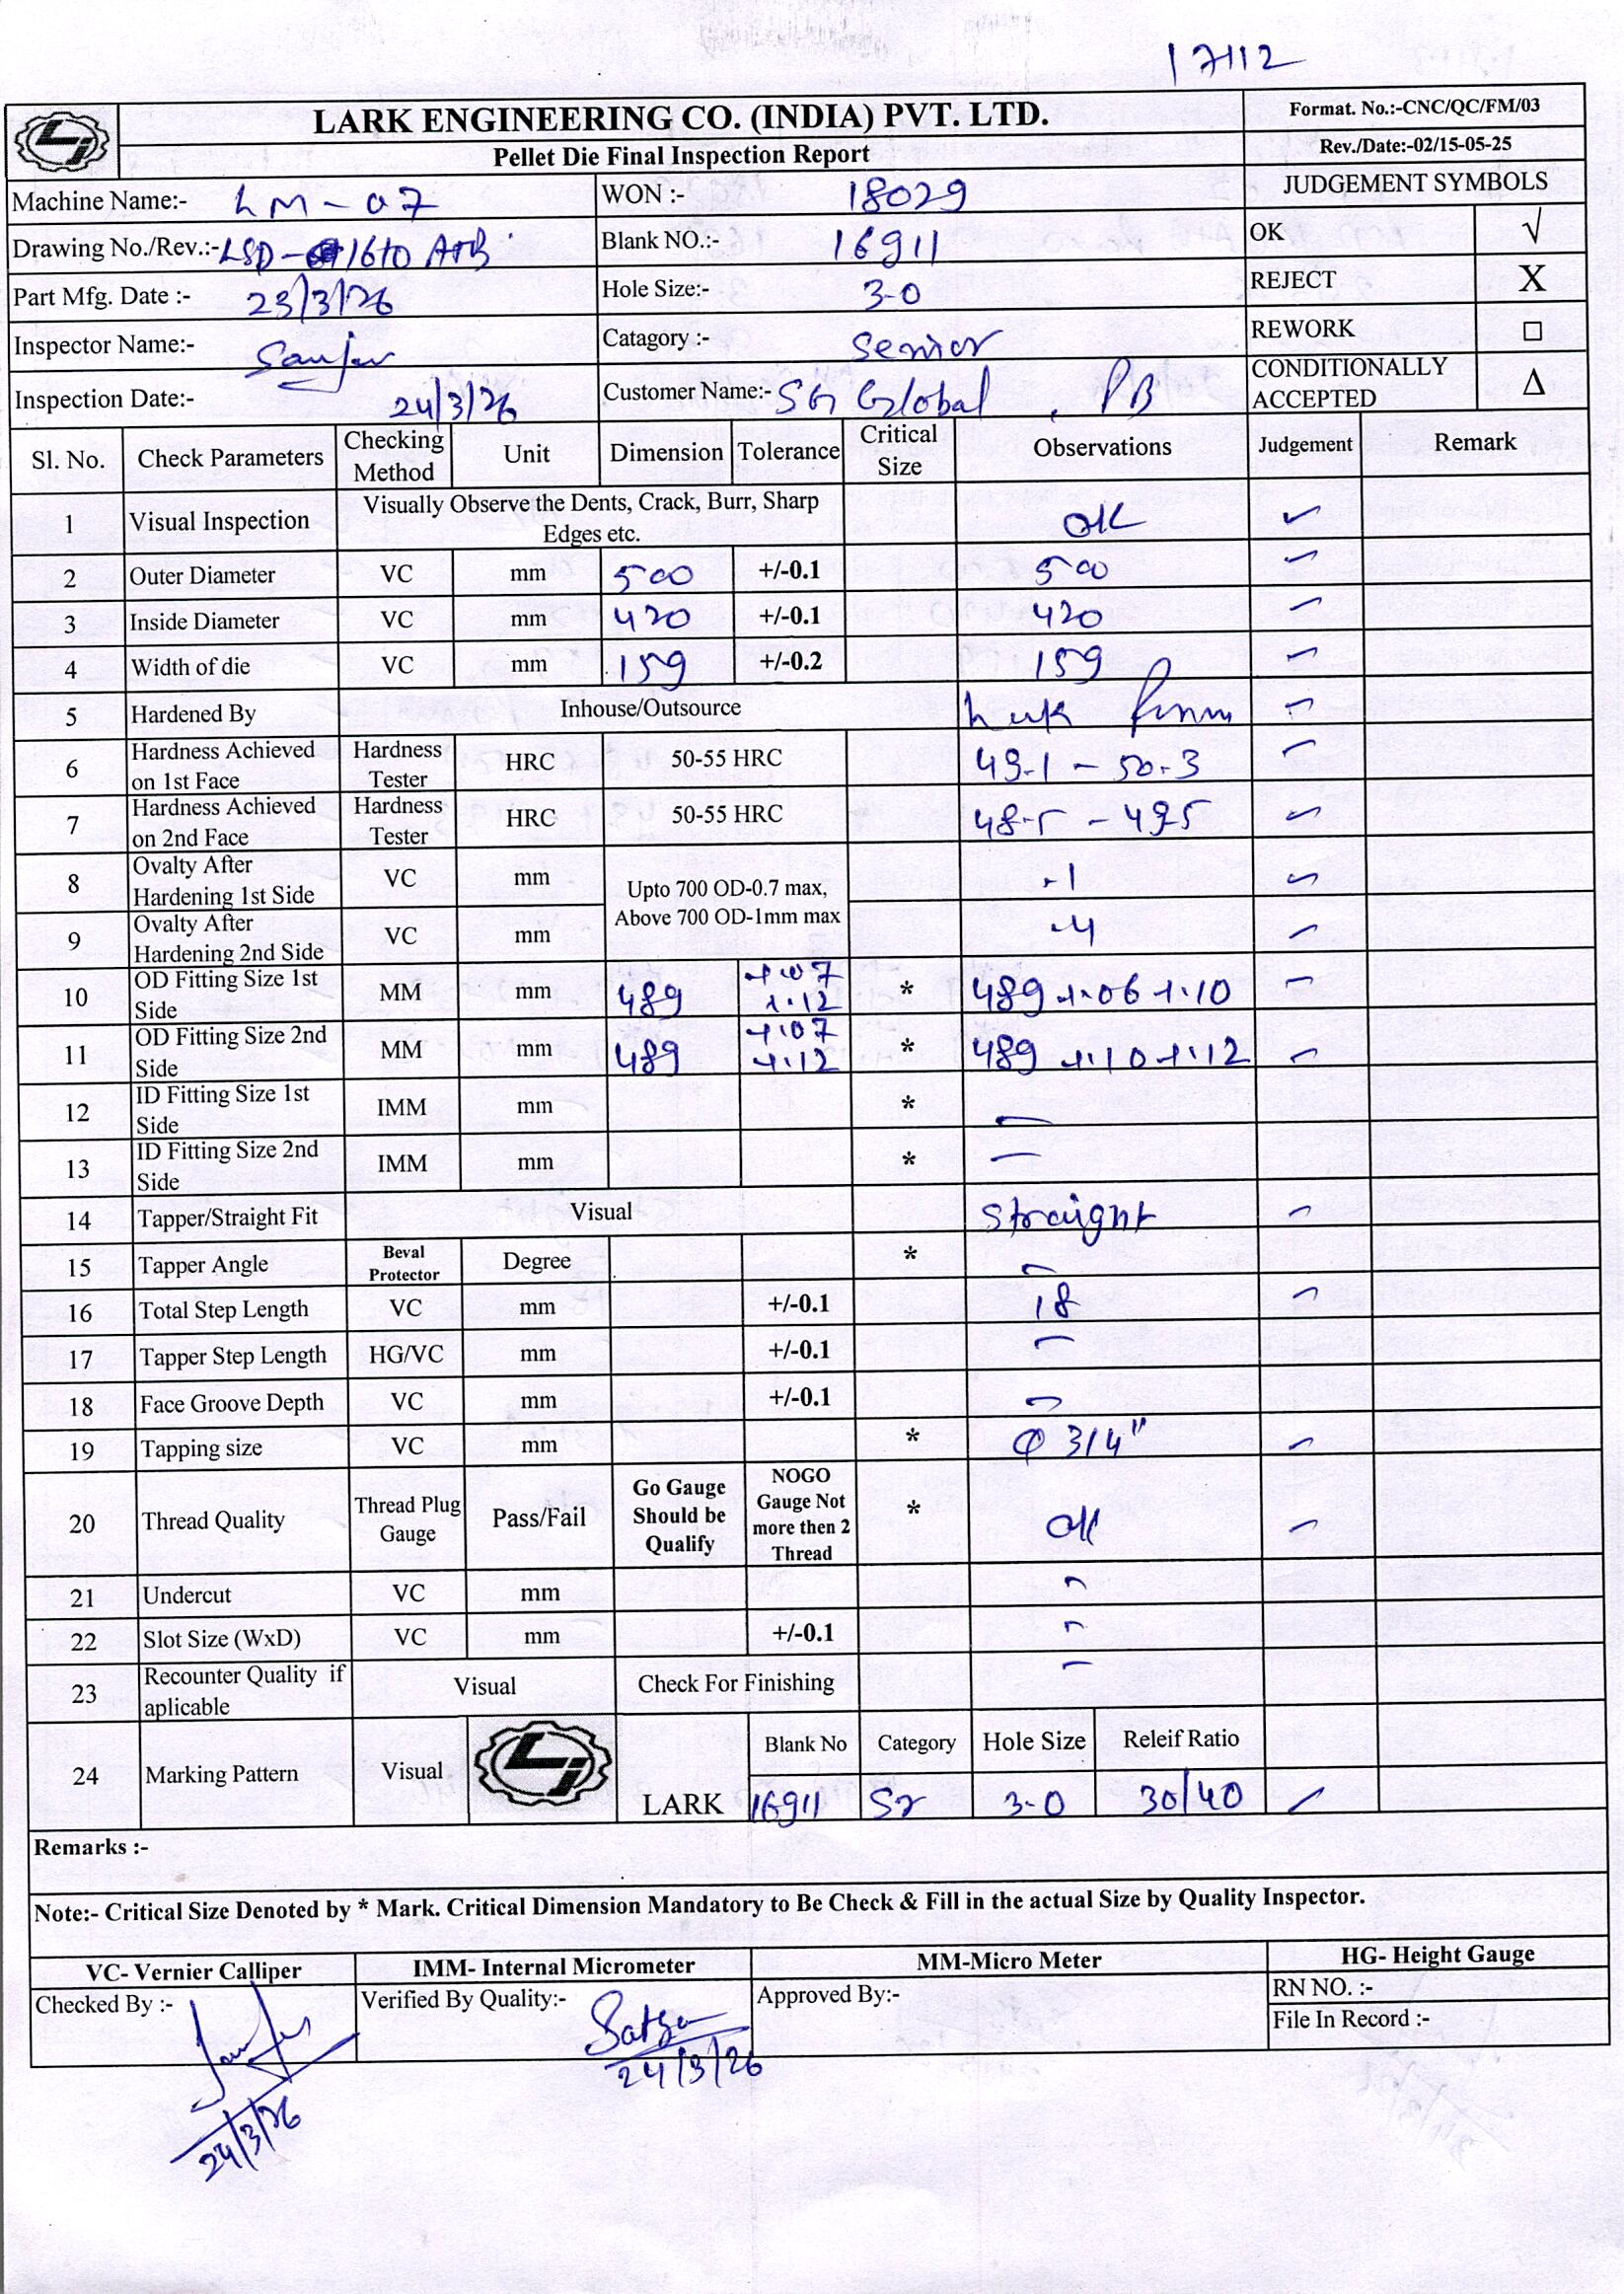 17112
LARK ENGINEERING CO. (INDIA) PVT. LTD.
Pellet Die Final Inspection Report
Format. No.:-CNC/QC/FM/03
Rev./Date:-02/15-05-25
JUDGEMENT SYMBOLS
Machine Name:- LM-07 WON :- 18029
Drawing No./Rev.:- LSD- Blank NO.:- 16911 OK √
Part Mfg. Date :- 23/3/26 Hole Size:- 3.0 REJECT X
Inspector Name:- Catagory :- Senior REWORK □
Inspection Date:- 24/3/26 Customer Name:- SG Global, PB CONDITIONALLY ACCEPTED Δ
Sl. No. Check Parameters Checking Method Unit Dimension Tolerance Critical Size Observations Judgement Remark
1 Visual Inspection Visually Observe the Dents, Crack, Burr, Sharp Edges etc. OK ✓
2 Outer Diameter VC mm 500 +/-0.1 500 ✓
3 Inside Diameter VC mm 420 +/-0.1 420 ✓
4 Width of die VC mm 159 +/-0.2 159 ✓
5 Hardened By Inhouse/Outsource ✓
6 Hardness Achieved on 1st Face Hardness Tester HRC 50-55 HRC 49.1 - 50.3 ✓
7 Hardness Achieved on 2nd Face Hardness Tester HRC 50-55 HRC 48.5 - 49.5 ✓
8 Ovalty After Hardening 1st Side VC mm Upto 700 OD-0.7 max, Above 700 OD-1mm max .1 ✓
9 Ovalty After Hardening 2nd Side VC mm .4 ✓
10 OD Fitting Size 1st Side MM mm 489 +.07 +.12 * 489 +.06 +.10 ✓
11 OD Fitting Size 2nd Side MM mm 489 +.07 +.12 * 489 +.10 +.12 ✓
12 ID Fitting Size 1st Side IMM mm * —
13 ID Fitting Size 2nd Side IMM mm * —
14 Tapper/Straight Fit Visual Straight ✓
15 Tapper Angle Beval Protector Degree * —
16 Total Step Length VC mm +/-0.1 18 ✓
17 Tapper Step Length HG/VC mm +/-0.1 —
18 Face Groove Depth VC mm +/-0.1 —
19 Tapping size VC mm * Φ 3/4" ✓
20 Thread Quality Thread Plug Gauge Pass/Fail Go Gauge Should be Qualify NOGO Gauge Not more then 2 Thread * OK ✓
21 Undercut VC mm —
22 Slot Size (WxD) VC mm +/-0.1 —
23 Recounter Quality if aplicable Visual Check For Finishing —
24 Marking Pattern Visual LARK Blank No Category Hole Size Releif Ratio
16911 Sr 3.0 30/40 ✓
Remarks :-
Note:- Critical Size Denoted by * Mark. Critical Dimension Mandatory to Be Check & Fill in the actual Size by Quality Inspector.
VC- Vernier Calliper IMM- Internal Micrometer MM-Micro Meter HG- Height Gauge
Checked By :- Verified By Quality:- Approved By:- RN NO. :-
File In Record :-
24/3/26
24/3/26